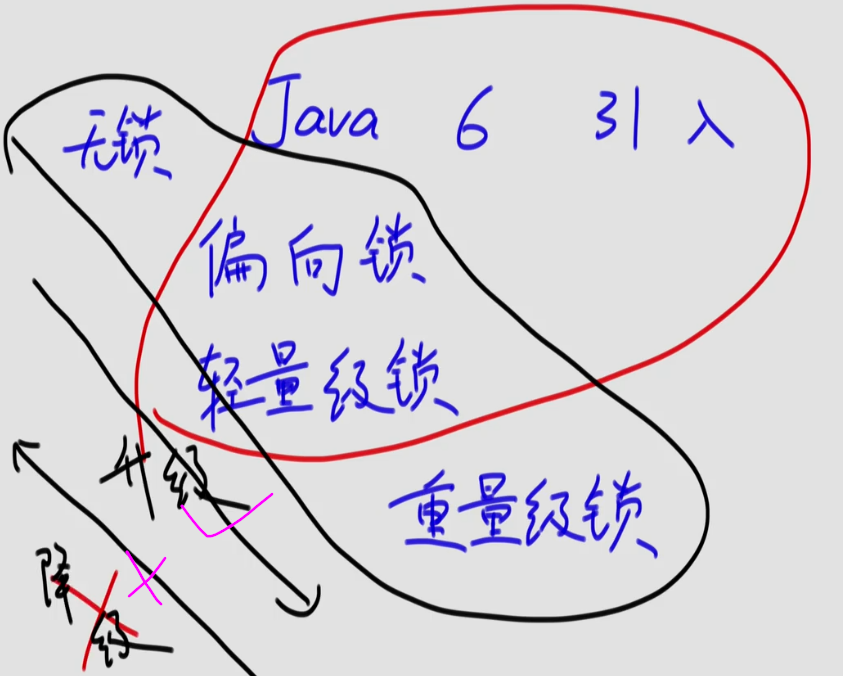 无锁
Java 6 引入
偏向锁
轻量级锁
升级
重量级锁
降级